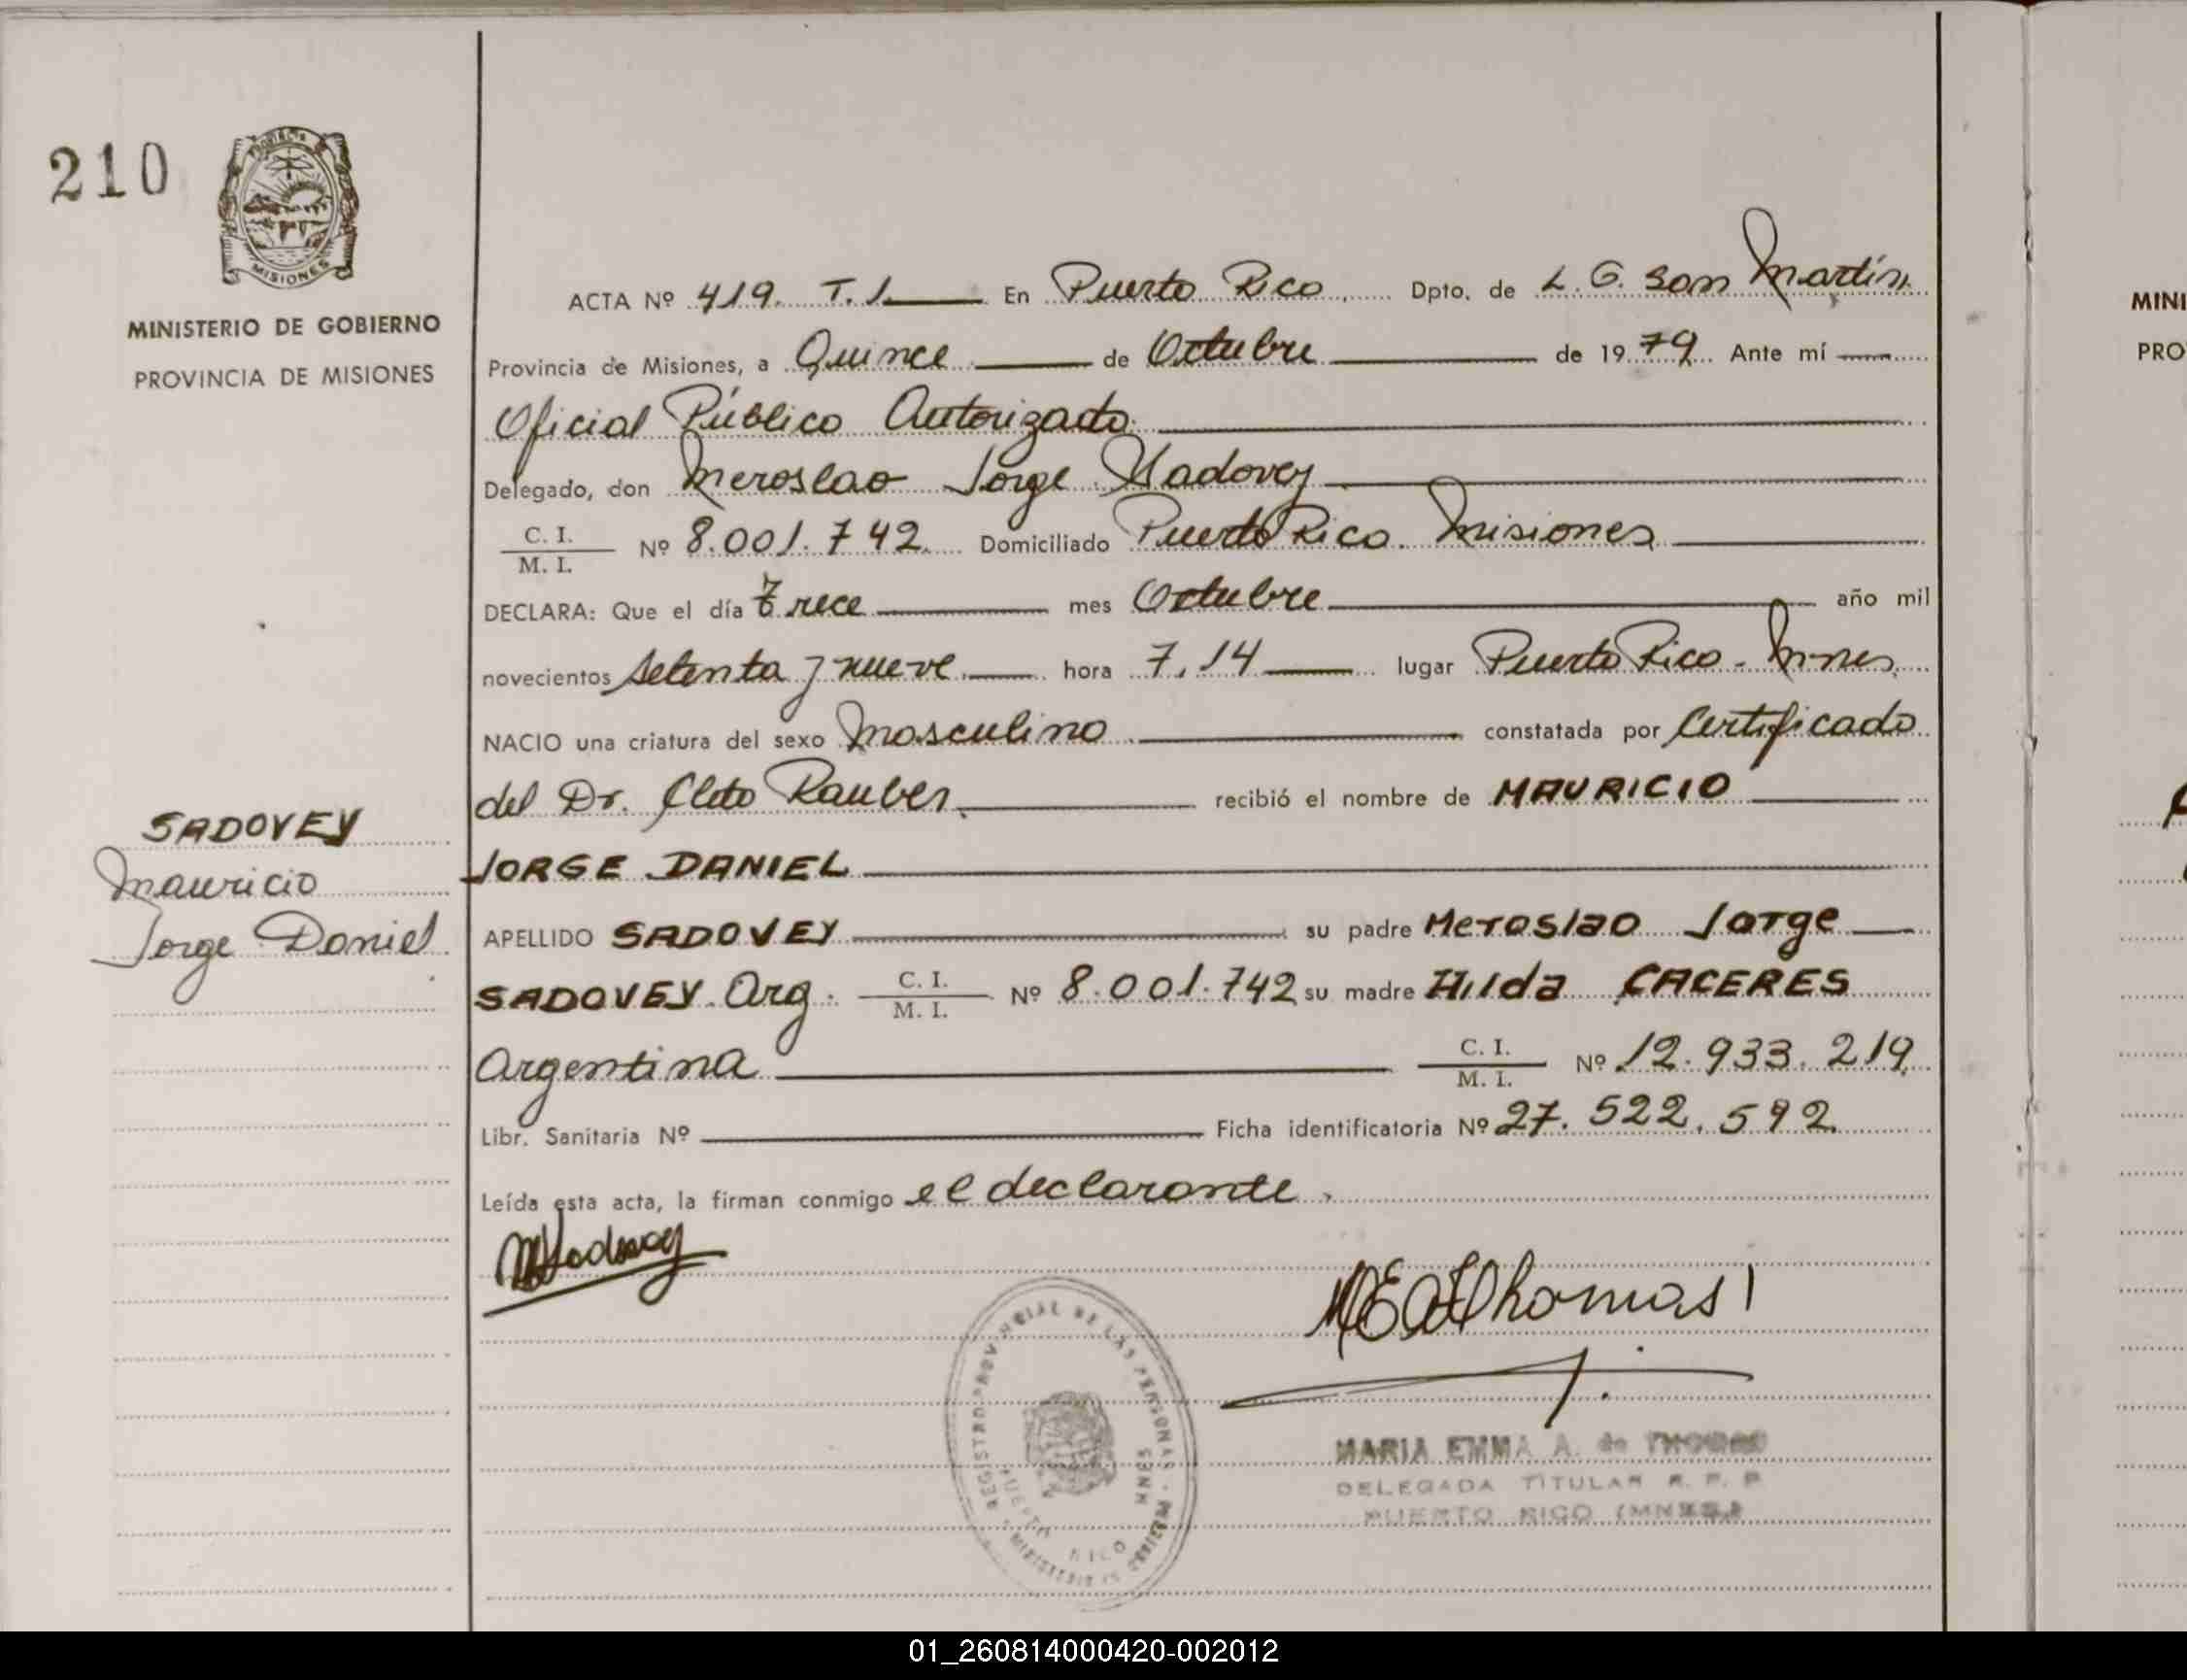 210
PROVINCIA
MISIONES
MINISTERIO DE GOBIERNO
PROVINCIA DE MISIONES
SADOVEY
Mauricio
Jorge Daniel
ACTA Nº 419. T. I. En Puerto Rico Dpto. de L. G. San Martín
Provincia de Misiones, a Quince de Octubre de 1979 Ante mí
Oficial Público Autorizado.
Delegado, don Meroslao Jorge Sadovey
C. I.
M. I. Nº 8.001.742 Domiciliado Puerto Rico. Misiones
DECLARA: Que el día Trece mes Octubre año mil
novecientos setenta y nueve hora 7.14 lugar Puerto Rico - Mnes.
NACIO una criatura del sexo Masculino constatada por Certificado
del Dr. Cleto Rauber. recibió el nombre de MAURICIO
JORGE DANIEL
APELLIDO SADOVEY su padre Meroslao Jorge
SADOVEY Arg. C. I. M. I. Nº 8.001.742 su madre Hilda CACERES
Argentina C. I. M. I. Nº 12.933.219
Libr. Sanitaria Nº Ficha identificatoria Nº 27.522.592
Leída esta acta, la firman conmigo el declarante.
MSadovey
MEAThomas
REGISTRO PROVINCIAL DE LAS PERSONAS - MISIONES
MINISTERIO DE GOBIERNO
PUERTO RICO MNES
MARIA EMMA A. de THOMAS
DELEGADA TITULAR R. P. P
PUERTO RICO (MNES.)
MINI
PRO
01_260814000420-002012